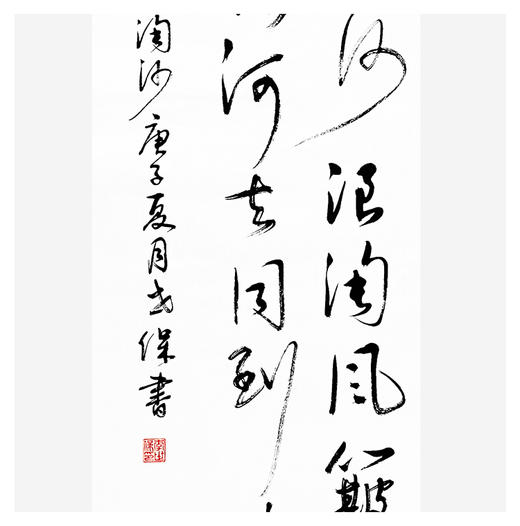 沙浪淘風簸
河去同到
淘沙庚子夏月世保書